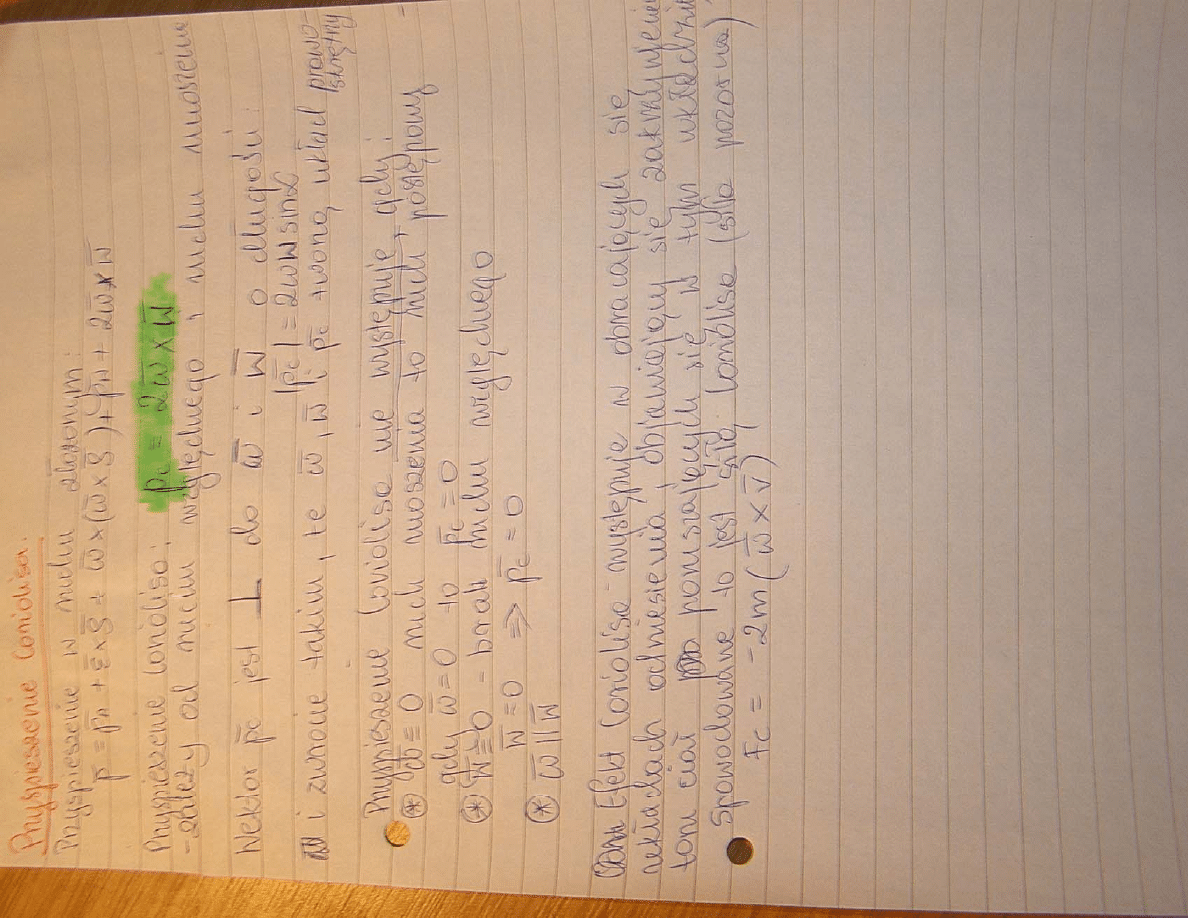 Przyspieszenie Coriolisa.
Przyspieszenie w ruchu złożonym:
p̄ = p̄ₙ + ε̄ × ρ̄ + ω̄ × (ω̄ × ρ̄) + p̄ₙ + 2ω̄ × w̄
Przyspieszenie Coriolisa: p̄c = 2ω̄ × w̄
- zależy od ruchu względnego i ruchu unoszenia
Wektor p̄c jest ⊥ do ω̄ i w̄ o długości:
|p̄c| = 2ωw sinα
i zwrocie takim, że ω̄, w̄ i p̄c tworzą układ prawo-
skrętny
Przyspieszenie Coriolisa nie występuje, gdy:
⊛ ω̄ = 0 ruch unoszenia to ruch postępowy
gdy ω̄ = 0 to p̄c = 0
⊛ w̄ = 0 - brak ruchu względnego
w̄ = 0 ⇒ p̄c = 0
⊛ ω̄ || w̄
Efekt Coriolisa - występuje w obracających się
układach odniesienia, objawiający się zakrzywieniem
toru ciał poruszających się w tym układzie.
Spowodowane to jest siłą Coriolisa (siła pozorna)
Fc = -2m(ω̄ × v̄)